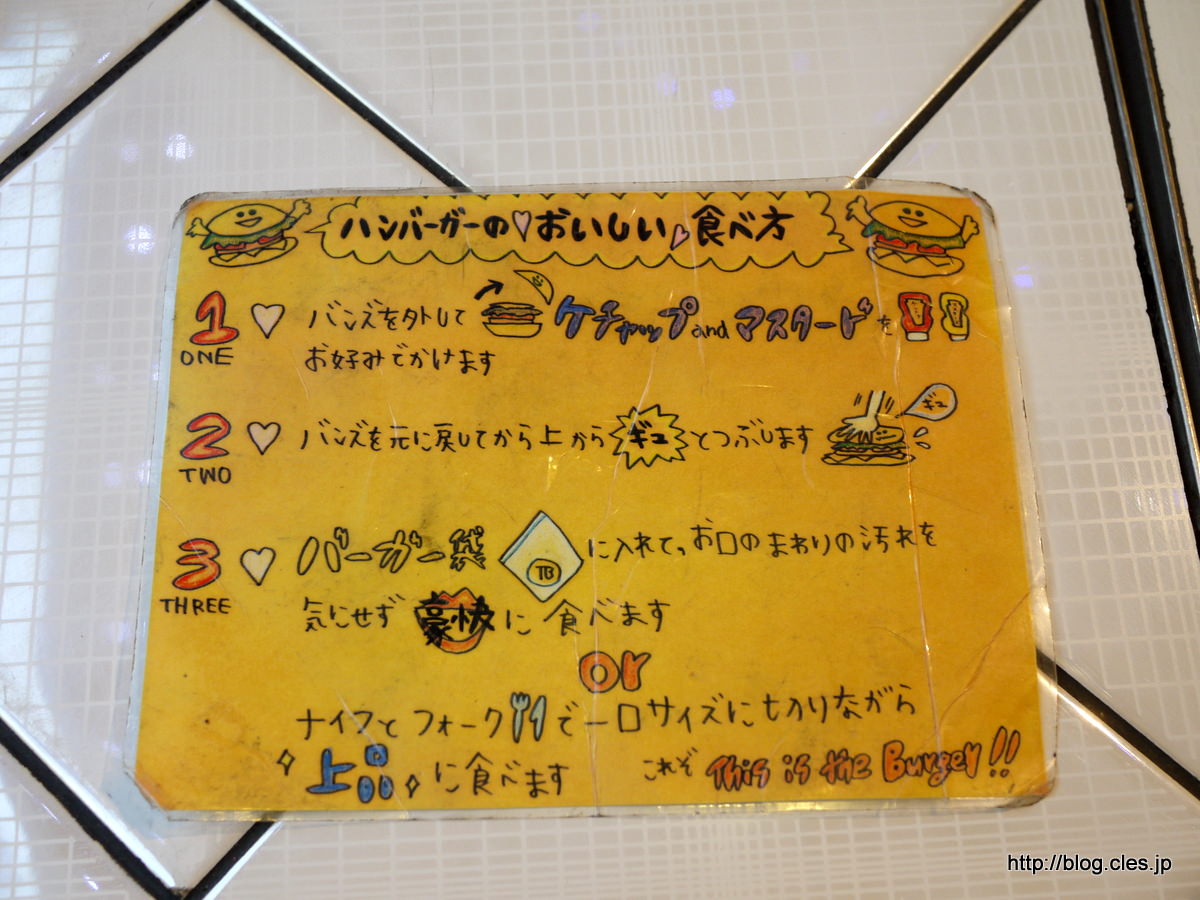 ハンバーガーの♡おいしい♡食べ方
1 ♡ バンズを外して ケチャップ and マスタード を
ONE
お好みでかけます
ギュ
2 ♡ バンズを元に戻してから上から ギュ とつぶします
TWO
3 ♡ バーガー袋 TB に入れて。お口のまわりの汚れを
THREE
気にせず 豪快 に 食べます
or
ナイフとフォークで一口サイズに切りながら
上品 に食べます これぞ This is the Burger!!
http://blog.cles.jp